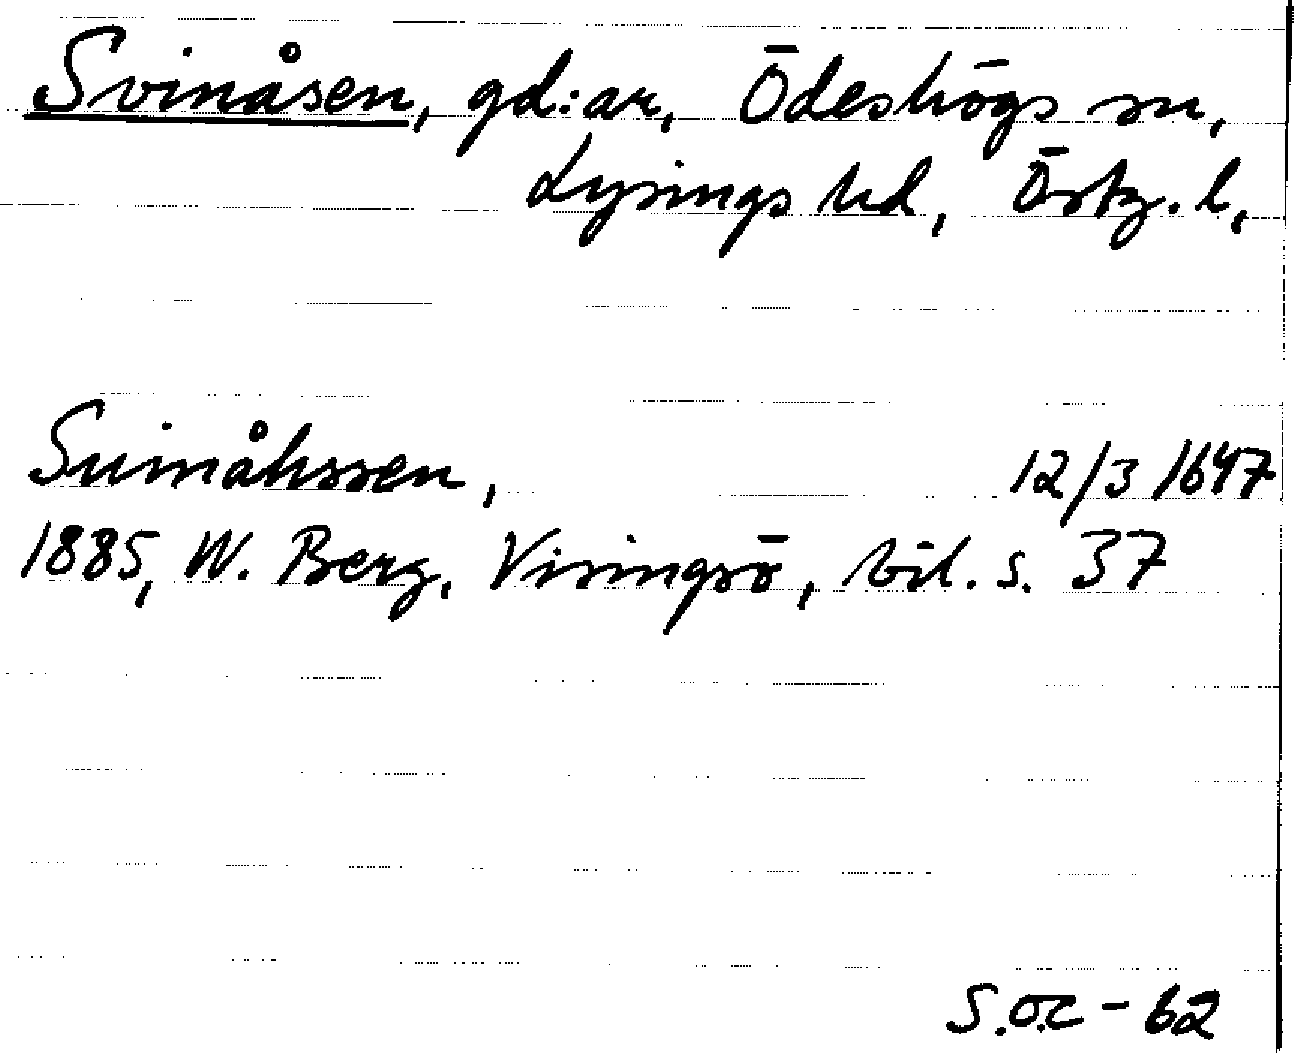 Svinåsen, gd:ar, Ödeshögs sn,
Lysings hd, Östg. l,
Suinåhssen, 12/3 1647
1885, W. Berg, Visingsö, bil. s. 37
S.O.C - 62